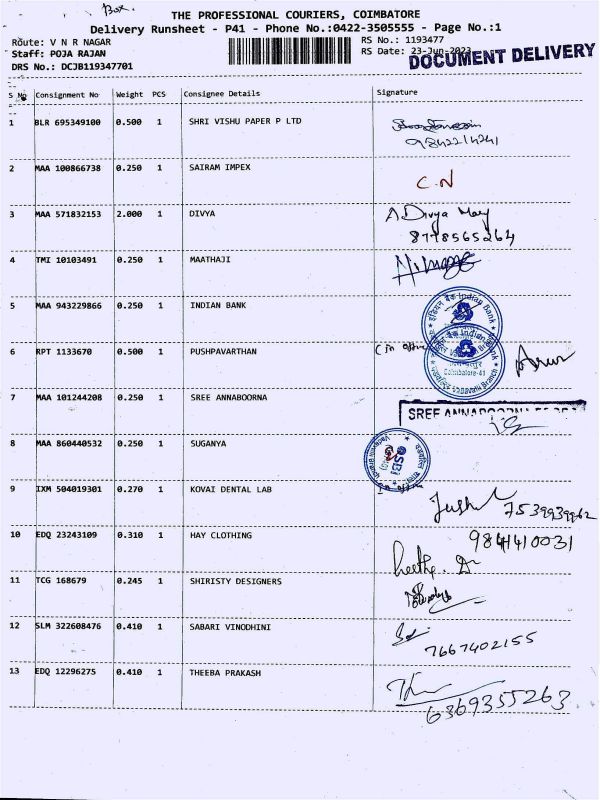 Box.
THE PROFESSIONAL COURIERS, COIMBATORE
Delivery Runsheet - P41 - Phone No.:0422-3505555 - Page No.:1
Route: V N R NAGAR RS No.: 1193477
Staff: POJA RAJAN RS Date: 23-Jun-2023
DRS No.: DCJB119347701 DOCUMENT DELIVERY
S No Consignment No Weight PCS Consignee Details Signature
1 BLR 695349100 0.500 1 SHRI VISHU PAPER P LTD
9842214241
2 MAA 100866738 0.250 1 SAIRAM IMPEX C.N
3 MAA 571832153 2.000 1 DIVYA A Divya Mary
8778565264
4 TMI 10103491 0.250 1 MAATHAJI
5 MAA 943229866 0.250 1 INDIAN BANK
Indian Bank
6 RPT 1133670 0.500 1 PUSHPAVARTHAN
Coimbatore-41
Vadavalli Branch
7 MAA 101244208 0.250 1 SREE ANNABOORNA
SREE ANNAPOORNA
8 MAA 860440532 0.250 1 SUGANYA
SBI
9 IXM 504019301 0.270 1 KOVAI DENTAL LAB
7539939962
10 EDQ 23243109 0.310 1 HAY CLOTHING 9841410031
11 TCG 168679 0.245 1 SHIRISTY DESIGNERS
12 SLM 322608476 0.410 1 SABARI VINODHINI
7667402155
13 EDQ 12296275 0.410 1 THEEBA PRAKASH
6369355263